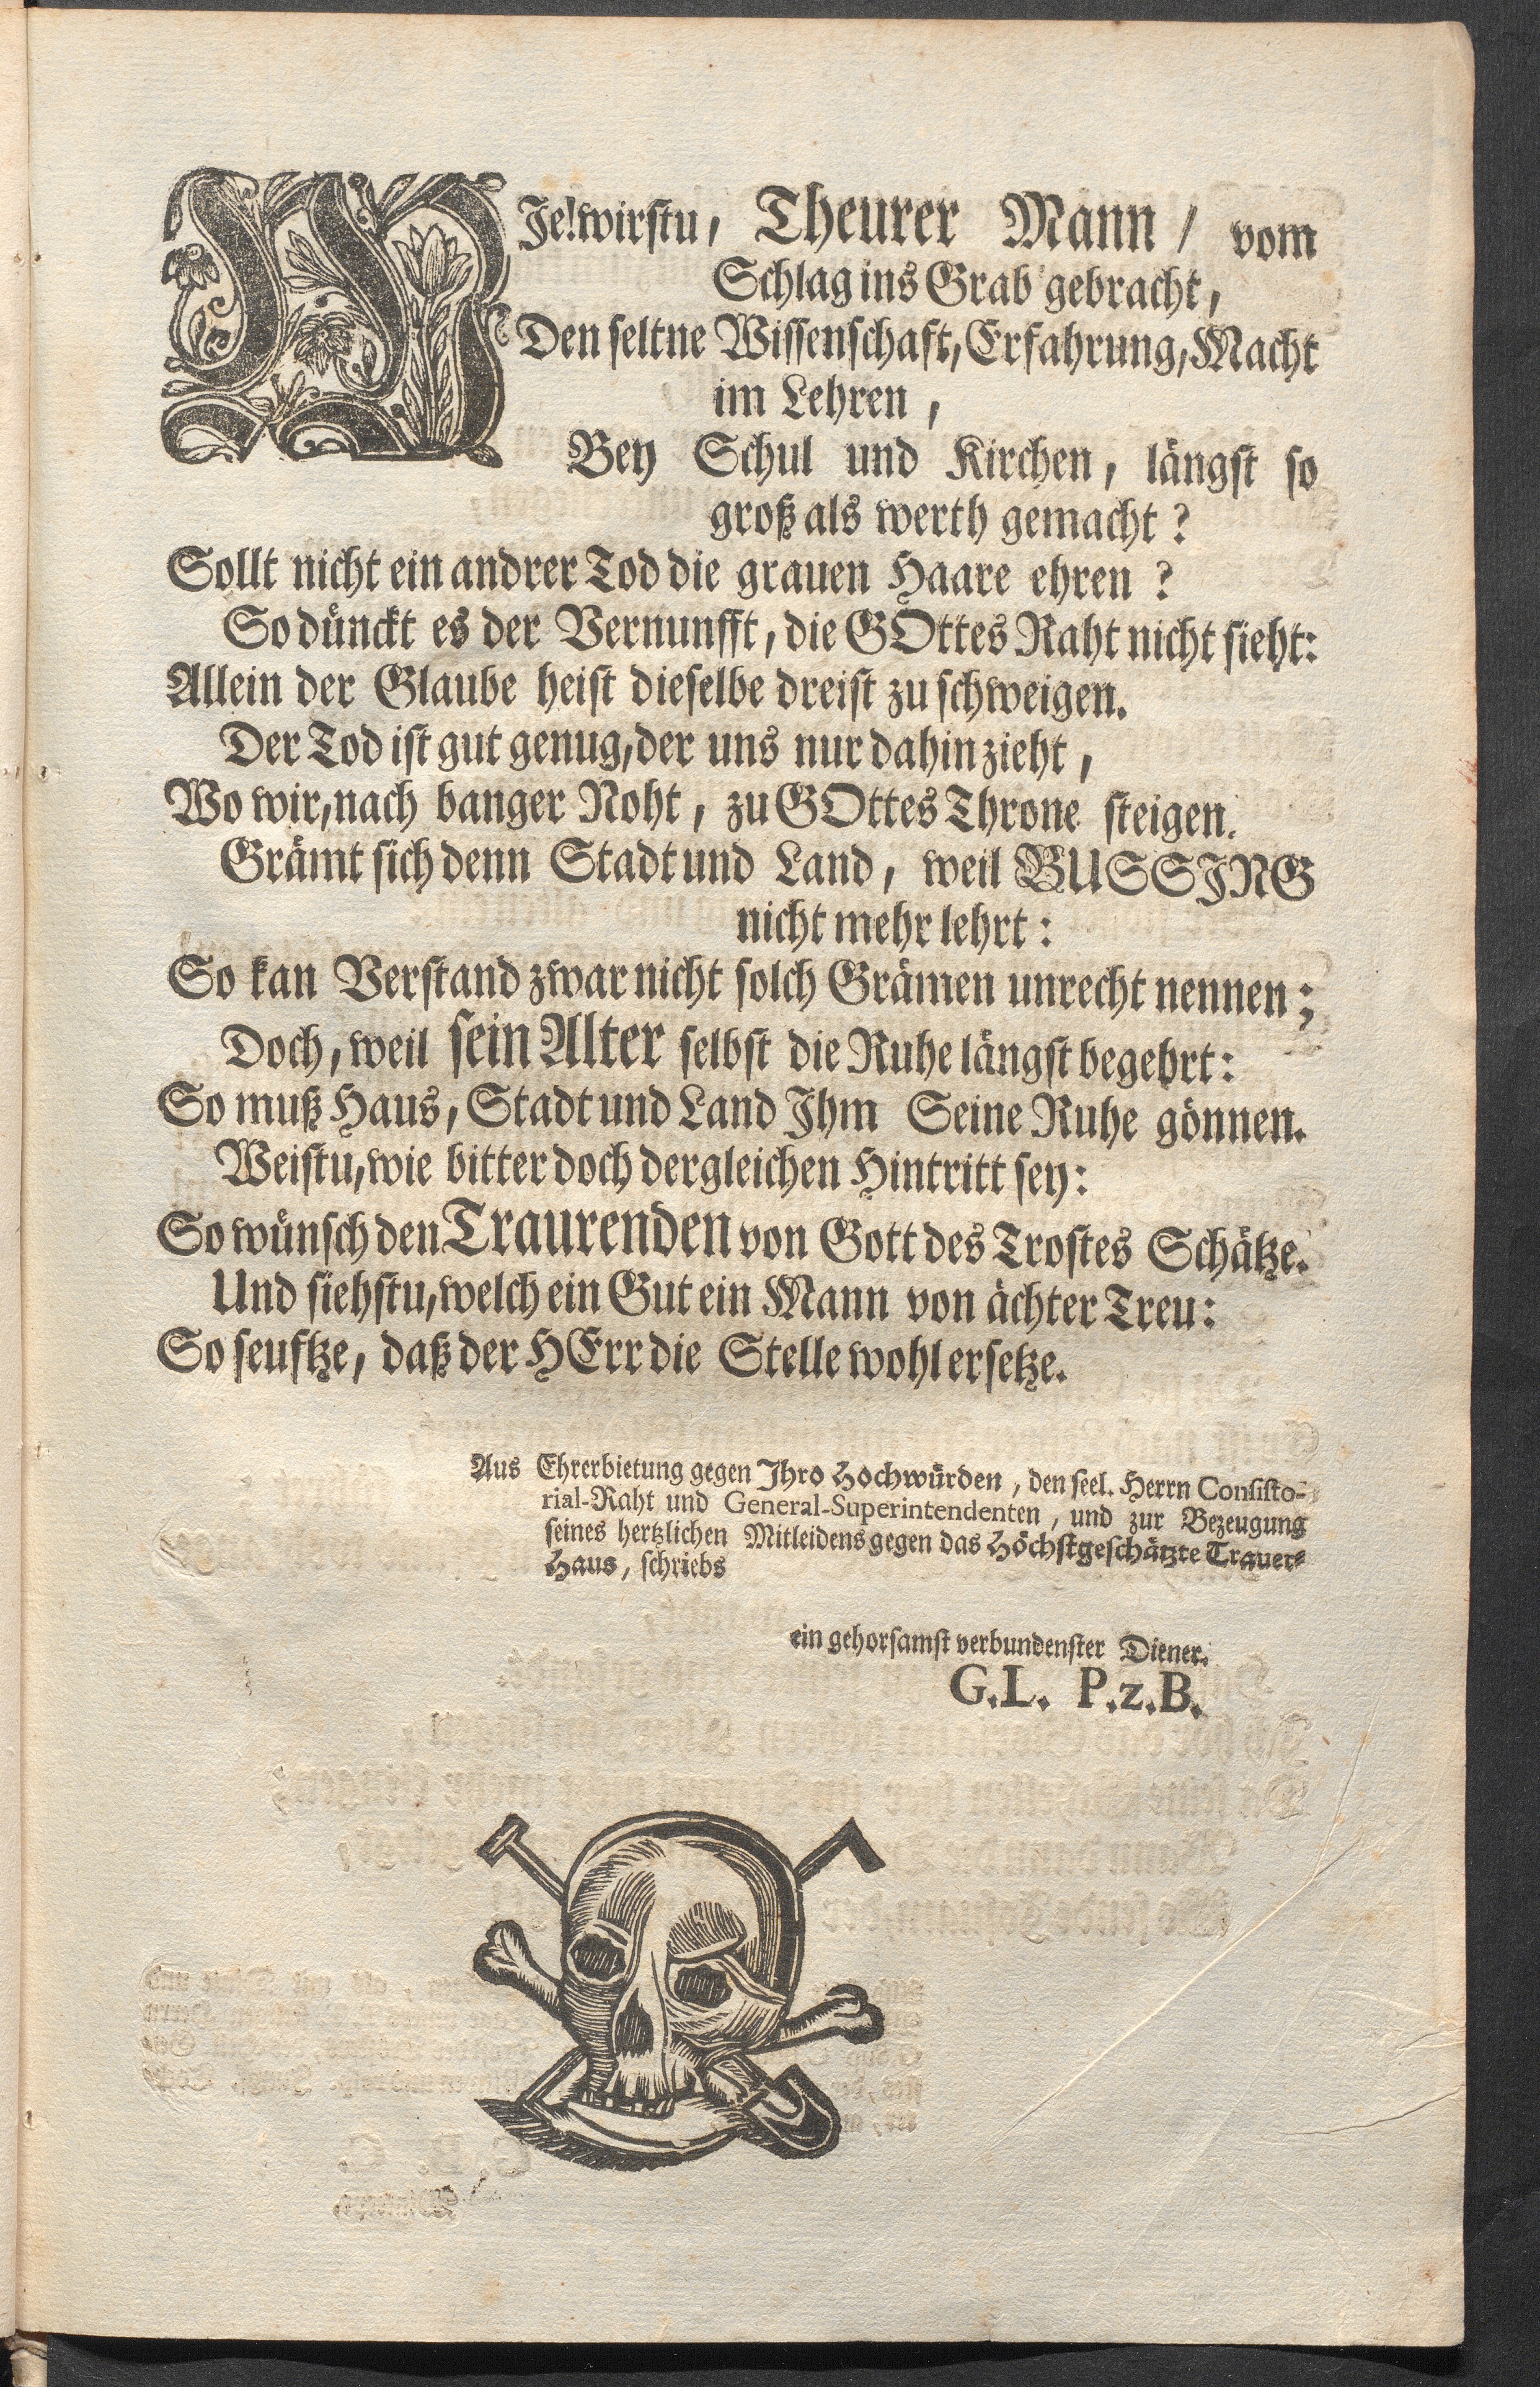 WJe! wirstu, Theurer Mann / vom
Schlag ins Grab gebracht,
Den seltne Wissenschaft, Erfahrung, Macht
im Lehren,
Bey Schul und Kirchen, längst so
groß als werth gemacht?
Sollt nicht ein andrer Tod die grauen Haare ehren?
So dünckt es der Vernunfft, die GOttes Raht nicht sieht:
Allein der Glaube heist dieselbe dreist zu schweigen.
Der Tod ist gut genug, der uns nur dahin zieht,
Wo wir, nach banger Noht, zu GOttes Throne steigen.
Grämt sich denn Stadt und Land, weil BUSSJNG
nicht mehr lehrt:
So kan Verstand zwar nicht solch Grämen unrecht nennen;
Doch, weil sein Alter selbst die Ruhe längst begehrt:
So muß Haus, Stadt und Land Jhm Seine Ruhe gönnen.
Weistu, wie bitter doch dergleichen Hintritt sey:
So wünsch den Traurenden von Gott des Trostes Schätze.
Und siehstu, welch ein Gut ein Mann von ächter Treu:
So seuftze, daß der HErr die Stelle wohl ersetze.
Aus Ehrerbietung gegen Jhro Hochwürden, den seel. Herrn Consisto-
rial-Raht und General-Superintendenten, und zur Bezeugung
seines hertzlichen Mitleidens gegen das Höchstgeschätzte Trauer-
Haus, schriebs
ein gehorsamst verbundenster Diener.
G.L. P.z.B.